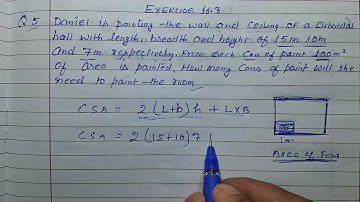 Exercise 11.3
Q5 Daniel is painting the wall and ceiling of a cuboidal
hall with length, breadth and height of 15m 10m
and 7m respectively. From each can of paint 100m²
of area is painted. How many cans of paint will she
need to paint the room
CSA = 2(L+b)h + L×B
CSA = 2(15+10)7
Area of Four